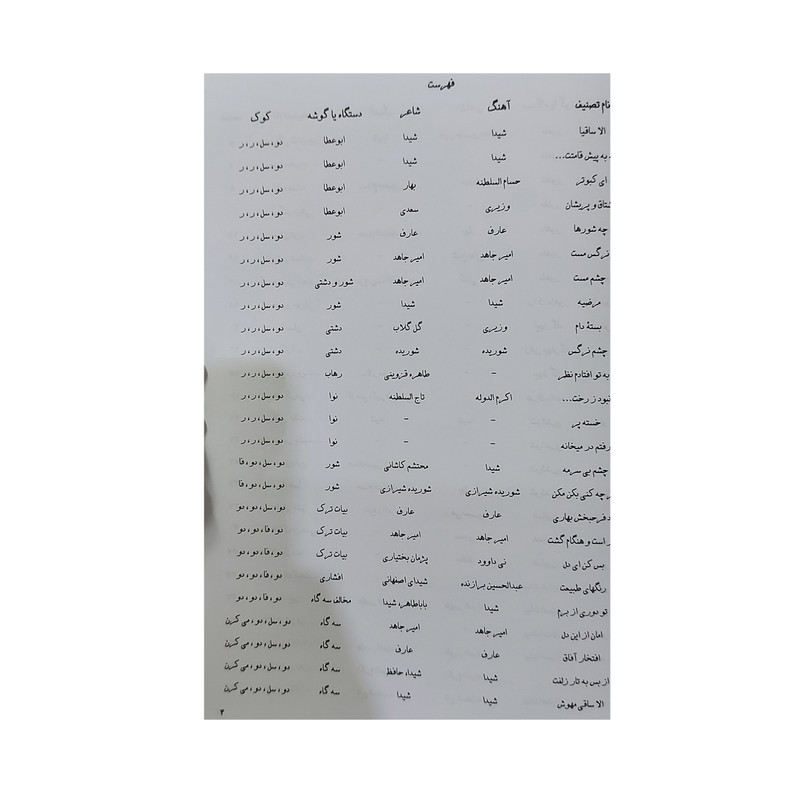 فهرست
نام تصنیف آهنگ شاعر دستگاه یا گوشه کوک
الا ساقیا شیدا شیدا ابوعطا دو، سل، ر، ر
به پیش قامتت... شیدا شیدا ابوعطا دو، سل، ر، ر
ای کبوتر حسام السلطنه بهار ابوعطا دو، سل، ر، ر
شتاق و پریشان وزیری سعدی ابوعطا دو، سل، ر، ر
چه شورها عارف عارف شور دو، سل، ر، ر
نرگس مست امیر جاهد امیر جاهد شور دو، سل، ر، ر
چشم مست امیر جاهد امیر جاهد شور و دشتی دو، سل، ر، ر
مرضیه شیدا شیدا شور دو، سل، ر، ر
بستهٔ دام وزیری گل گلاب دشتی دو، سل، ر، ر
چشم نرگس شوریده شوریده دشتی دو، سل، ر، ر
به تو افتادم نظر – طاهره قزوینی رهاب دو، سل، ر، ر
نبود ز رخت... اکرم الدوله تاج السلطنه نوا دو، سل، ر، ر
خسته پر – – نوا دو، سل، ر، ر
رفتم در میخانه – – نوا دو، سل، ر، ر
چشم بی سرمه شیدا محتشم کاشانی شور دو، سل، دو، فا
ر چه کنی بکن مکن شوریده شیرازی شوریده شیرازی شور دو، سل، دو، فا
د فرحبخش بهاری عارف عارف بیات ترک دو، سل، دو، دو
ر است و هنگام گشت امیر جاهد امیر جاهد بیات ترک دو، فا، دو، دو
بس کن ای دل نی داوود پژمان بختیاری بیات ترک دو، فا، دو، دو
رنگهای طبیعت عبدالحسین برازنده شیدای اصفهانی افشاری دو، فا، دو، دو
تو دوری از برم شیدا باباطاهر، شیدا مخالف سه گاه دو، فا، دو، دو
امان از این دل امیر جاهد امیر جاهد سه گاه دو، سل، دو، می کرن
افتخار آفاق عارف عارف سه گاه دو، سل، دو، می کرن
از بس به تار زلفت شیدا شیدا، حافظ سه گاه دو، سل، دو، می کرن
الا ساقی مهوش شیدا شیدا سه گاه دو، سل، دو، می کرن
۲